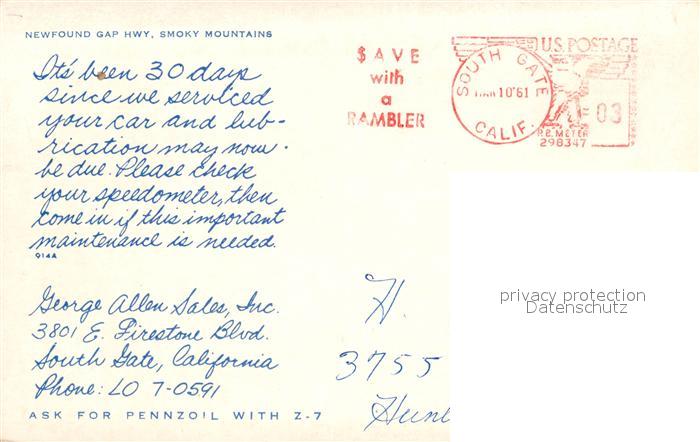 NEWFOUND GAP HWY, SMOKY MOUNTAINS
It's been 30 days
since we serviced
your car and lub-
rication may now
be due. Please check
your speedometer, then
come in if this important
maintenance is needed.
914A
George Allen Sales, Inc.
3801 E. Firestone Blvd.
South Gate, California
Phone: LO 7-0591
ASK FOR PENNZOIL WITH Z-7
$AVE
with
a
RAMBLER
SOUTH GATE
10 '61
CALIF.
U.S. POSTAGE
03
P.B. METER
298347
privacy protection
Datenschutz
H.
3755